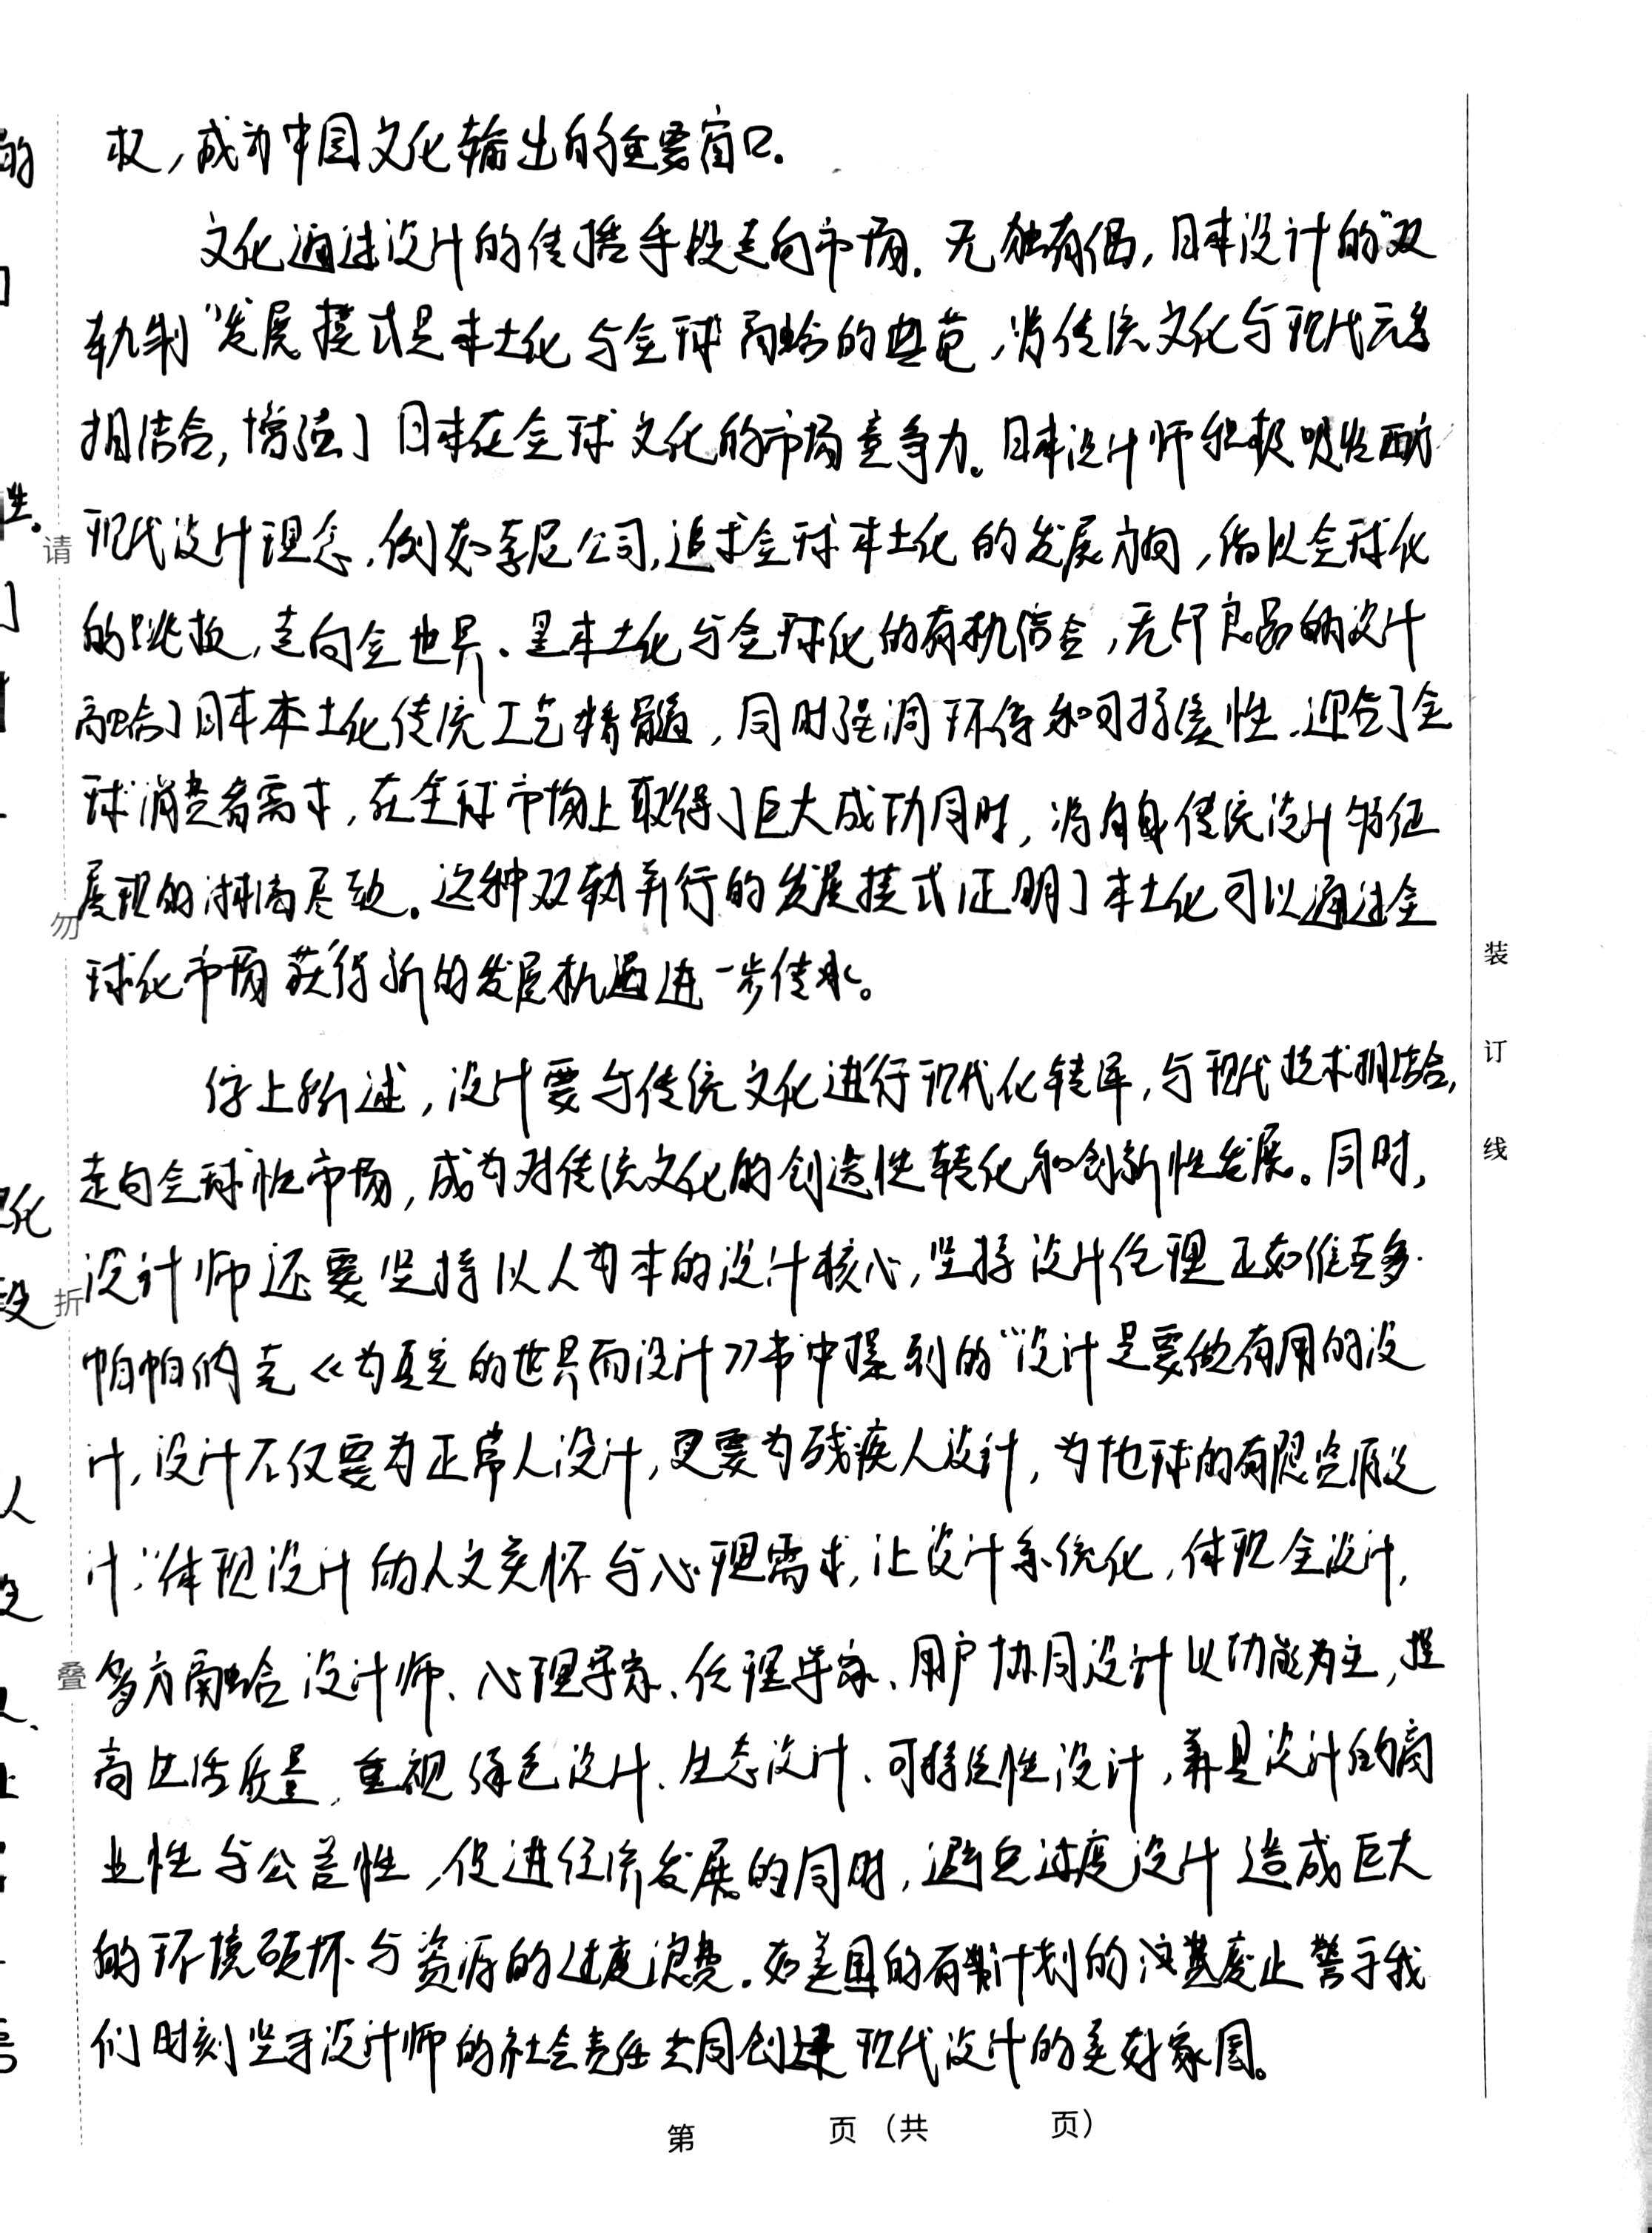 权,成为中国文化输出的重要窗口。
文化通过设计的传播手段走向市场。无独有偶,日本设计的"双
轨制"发展模式是本土化与全球融合的典范,将传统文化与现代元素
相结合,增强了日本在全球文化的市场竞争力。日本设计师积极吸收西方
现代设计理念,例如索尼公司,追求全球本土化的发展方向,借以全球化
的跳板,走向全世界。是本土化与全球化的有机结合,无印良品的设计
融合了日本本土化传统工艺精髓,同时强调环保和可持续性,迎合了全
球消费者需求,在全球市场上取得了巨大成功同时,将自身传统设计特征
展现的淋漓尽致。这种双轨并行的发展模式证明了本土化可以通过全
球化市场获得新的发展机遇进一步传承。
综上所述,设计要与传统文化进行现代化转译,与现代技术相结合,
走向全球性市场,成为对传统文化的创造性转化和创新性发展。同时,
设计师还要坚持以人为本的设计核心,坚持设计伦理正如维克多·
帕帕纳克《为真实的世界而设计》书中提到的"设计是要做有用的设
计,设计不仅要为正常人设计,更要为残疾人设计,为地球的有限资源设
计:"体现设计的人文关怀与心理需求,让设计系统化,体现全设计,
多方融合设计师、心理学家、伦理学家、用户协同设计以功能为主,提
高生活质量,重视绿色设计、生态设计、可持续性设计,兼具设计的商
业性与公益性,促进经济发展的同时,避免过度设计造成巨大
的环境破坏与资源的过度浪费。如美国的有计划的废止警示我
们时刻坚守设计师的社会责任共同创建现代设计的美好家园。
请
勿
折
叠
装
订
线
第 页(共 页)